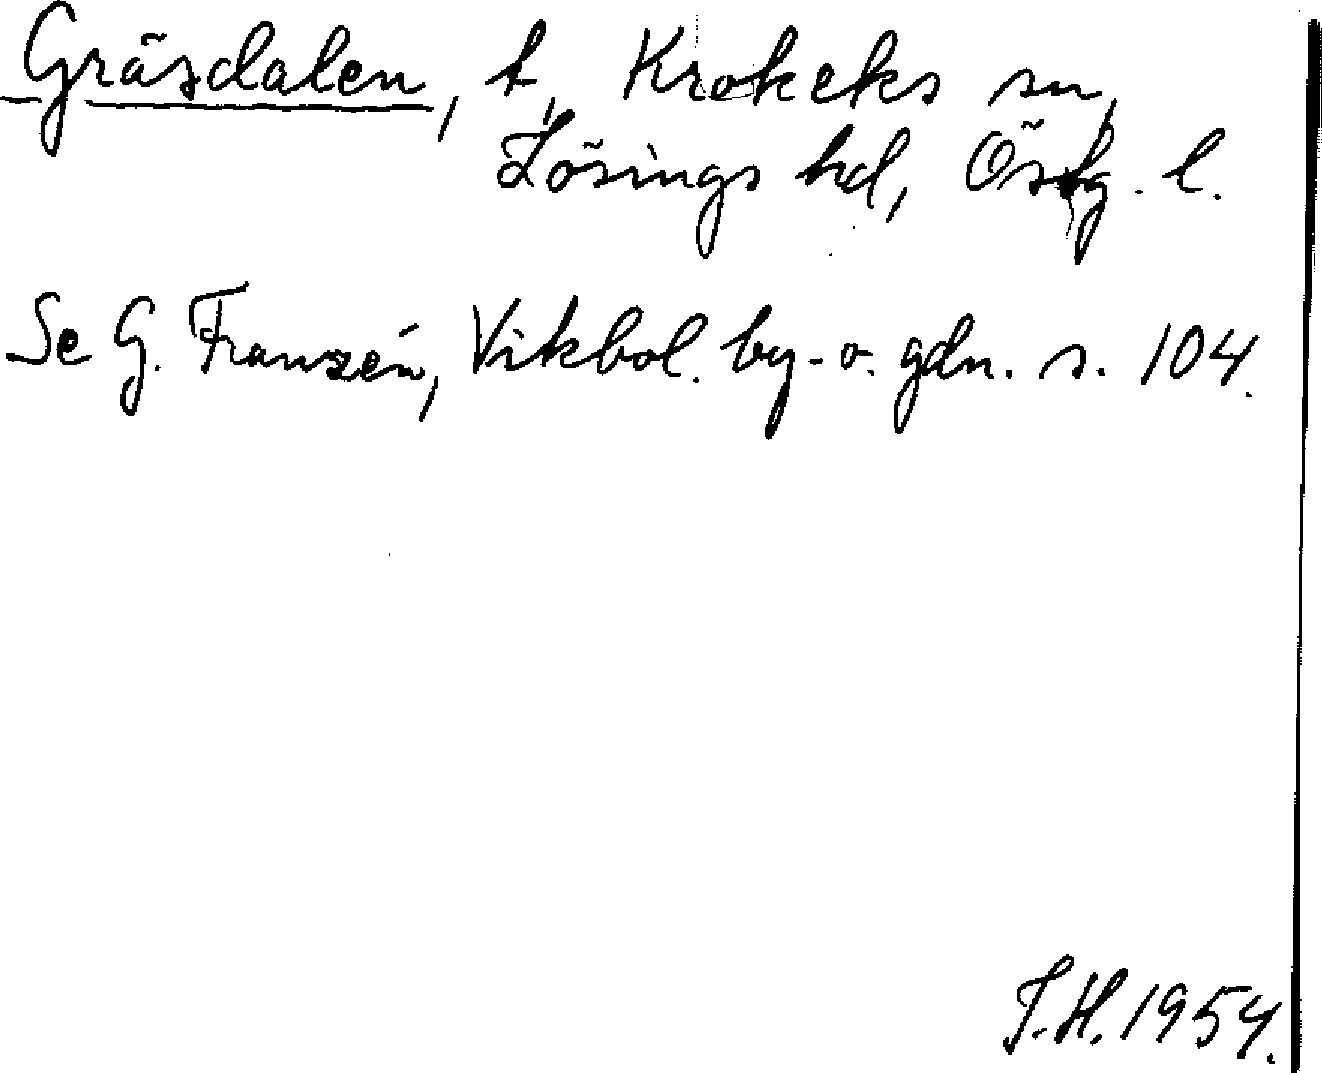 Gräsdalen, t, Krokeks sn,
Lösings hd, Östg. l.
Se G. Franzén, Vikbol. by- o. gdn. s. 104.
T.H. 1954.